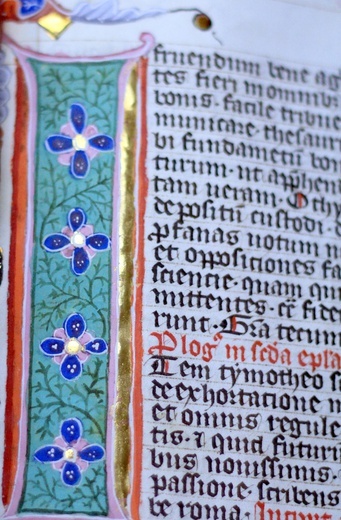 fruendum bene ag
tes fieri in omnibꝫ
bonis. facile tribue
municare. thesauri
bi fundamētū bon
turum. ut apphen
tam ueram. O thy
depositū custodi. d
phanas uocum n
et opposiciones fa
sciencie. quam qui
mittentes. c̄ fide
runt. Gr̄a tecum
Plogꝰ in scd̄a epl̄a
Item tymotheo s
de exhortacione m
et omnis regule
tis. ⁊ quid futuri
bus nouissimis.
passione. scribens
be roma. Incipit